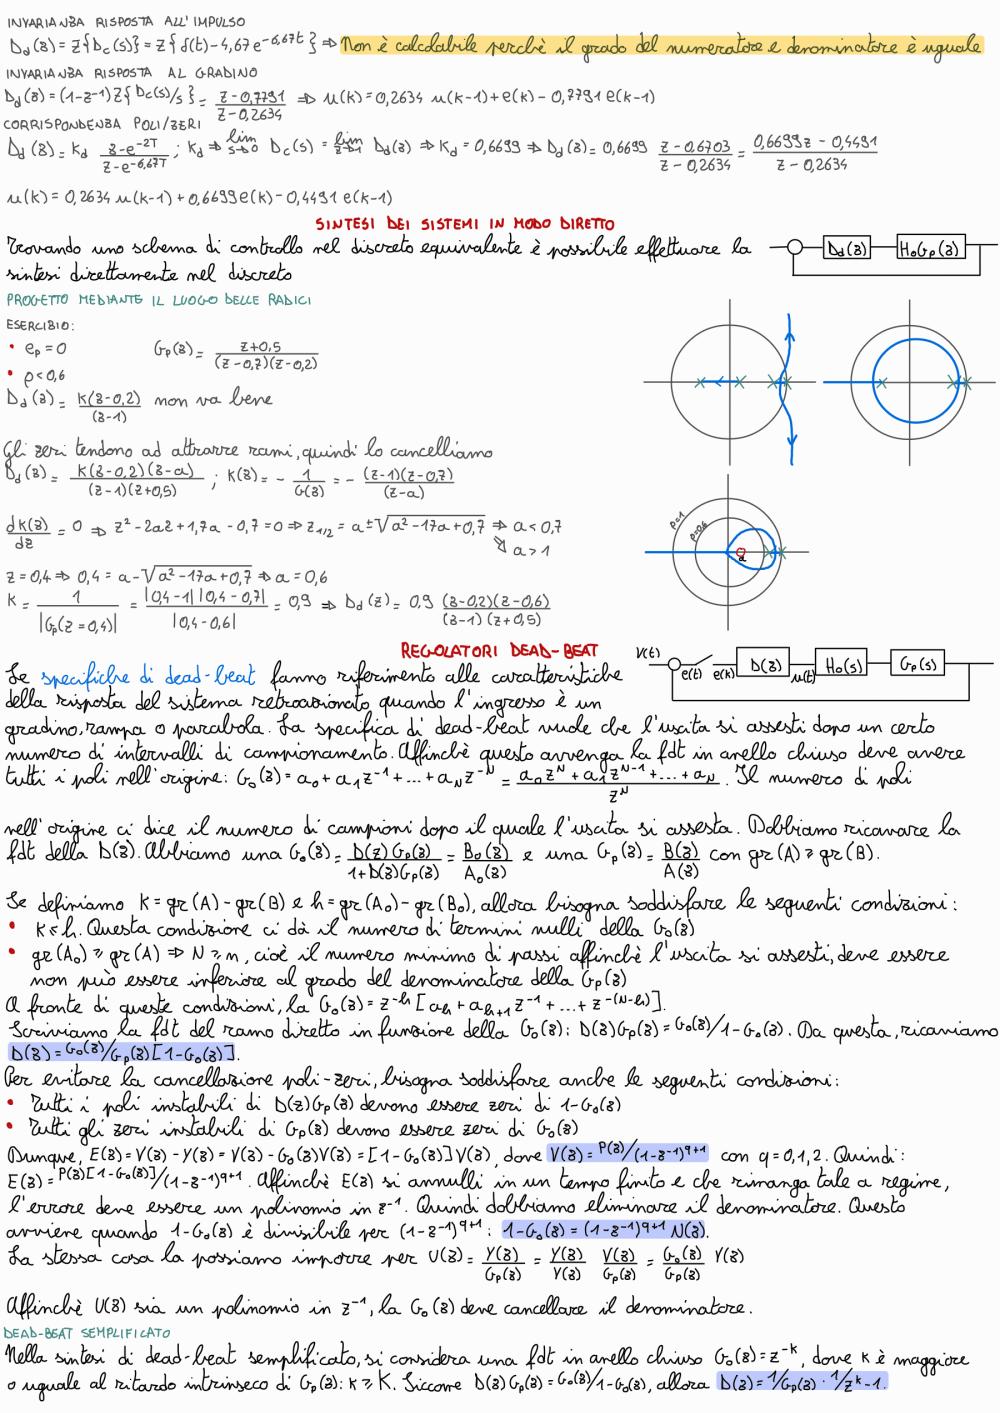 INVARIANZA RISPOSTA ALL'IMPULSO
D_d(z) = Z{D_c(s)} = Z{δ(t) - 4,67e^{-6,67t}} ⇒ Non è calcolabile perchè il grado del numeratore e denominatore è uguale
INVARIANZA RISPOSTA AL GRADINO
D_d(z) = (1-z^{-1})Z{D_c(s)/s} = (z-0,7791)/(z-0,2634) ⇒ u(k) = 0,2634 u(k-1) + e(k) - 0,7791 e(k-1)
CORRISPONDENZA POLI/ZERI
D_d(z) = K_d (z-e^{-2T})/(z-e^{-6,67T}); K_d ⇒ lim_{s→0} D_c(s) = lim_{z→1} D_d(z) ⇒ K_d = 0,6699 ⇒ D_d(z) = 0,6699 (z-0,6703)/(z-0,2634) = (0,6699z - 0,4491)/(z-0,2634)
u(k) = 0,2634 u(k-1) + 0,6699e(k) - 0,4491 e(k-1)
SINTESI DEI SISTEMI IN MODO DIRETTO
Trovando uno schema di controllo nel discreto equivalente è possibile effettuare la
sintesi direttamente nel discreto
D_d(z) H_0G_p(z)
PROGETTO MEDIANTE IL LUOGO DELLE RADICI
ESERCIZIO:
• e_p = 0 G_p(z) = (z+0,5)/((z-0,7)(z-0,2))
• ρ < 0,6
D_d(z) = K(z-0,2)/(z-1) non va bene
Gli zeri tendono ad attrarre rami, quindi lo cancelliamo
D_d(z) = K(z-0,2)(z-a)/((z-1)(z+0,5)); K(z) = - 1/G(z) = - (z-1)(z-0,7)/(z-a)
dK(z)/dz = 0 ⇒ z² - 2az + 1,7a - 0,7 = 0 ⇒ z_{1/2} = a ± √(a² - 17a + 0,7) ⇒ a < 0,7
⇘ a > 1
ρ=1
ρ=0,6
a
z = 0,4 ⇒ 0,4 = a - √(a² - 17a + 0,7) ⇒ a = 0,6
K = 1/|G_p(z=0,4)| = |0,4-1| |0,4-0,7|/|0,4-0,6| = 0,9 ⇒ D_d(z) = 0,9 (z-0,2)(z-0,6)/((z-1)(z+0,5))
REGOLATORI DEAD-BEAT
V(t) e(t) e(k) D(z) u(t) H_0(s) G_p(s)
Le specifiche di dead-beat fanno riferimento alle caratteristiche
della risposta del sistema retroazionato quando l'ingresso è un
gradino, rampa o parabola. La specifica di dead-beat vuole che l'uscita si assesti dopo un certo
numero di intervalli di campionamento. Affinchè questo avvenga la fdt in anello chiuso deve avere
tutti i poli nell'origine: G_0(z) = a_0 + a_1z^{-1} + ... + a_Nz^{-N} = (a_0z^N + a_1z^{N-1} + ... + a_N)/z^N. Il numero di poli
nell'origine ci dice il numero di campioni dopo il quale l'uscita si assesta. Dobbiamo ricavare la
fdt della D(z). Abbiamo una G_0(z) = D(z)G_p(z)/(1+D(z)G_p(z)) = B_0(z)/A_0(z) e una G_p(z) = B(z)/A(z) con gr(A) ≥ gr(B).
Se definiamo K = gr(A) - gr(B) e h = gr(A_0) - gr(B_0), allora bisogna soddisfare le seguenti condizioni:
• K ≤ h. Questa condizione ci dà il numero di termini nulli della G_0(z)
• gr(A_0) ≥ gr(A) ⇒ N ≥ n, cioè il numero minimo di passi affinchè l'uscita si assesti, deve essere
non può essere inferiore al grado del denominatore della G_p(z)
A fronte di queste condizioni, la G_0(z) = z^{-h} [a_h + a_{h+1}z^{-1} + ... + z^{-(N-h)}].
Scriviamo la fdt del ramo diretto in funzione della G_0(z): D(z)G_p(z) = G_0(z)/1-G_0(z). Da questa, ricaviamo
D(z) = G_0(z)/G_p(z)[1-G_0(z)].
Per evitare la cancellazione poli-zeri, bisogna soddisfare anche le seguenti condizioni:
• Tutti i poli instabili di D(z)G_p(z) devono essere zeri di 1-G_0(z)
• Tutti gli zeri instabili di G_p(z) devono essere zeri di G_0(z)
Dunque, E(z) = V(z) - Y(z) = V(z) - G_0(z)V(z) = [1-G_0(z)]V(z), dove V(z) = P(z)/(1-z^{-1})^{q+1} con q = 0,1,2. Quindi:
E(z) = P(z)[1-G_0(z)]/(1-z^{-1})^{q+1}. Affinchè E(z) si annulli in un tempo finito e che rimanga tale a regime,
l'errore deve essere un polinomio in z^{-1}. Quindi dobbiamo eliminare il denominatore. Questo
avviene quando 1-G_0(z) è divisibile per (1-z^{-1})^{q+1}: 1-G_0(z) = (1-z^{-1})^{q+1} N(z).
La stessa cosa la possiamo imporre per U(z) = Y(z)/G_p(z) = Y(z)/V(z) V(z)/G_p(z) = G_0(z)/G_p(z) V(z)
Affinchè U(z) sia un polinomio in z^{-1}, la G_0(z) deve cancellare il denominatore.
DEAD-BEAT SEMPLIFICATO
Nella sintesi di dead-beat semplificato, si considera una fdt in anello chiuso G_0(z) = z^{-k}, dove k è maggiore
o uguale al ritardo intrinseco di G_p(z): k ≥ K. Siccome D(z)G_p(z) = G_0(z)/1-G_0(z), allora D(z) = 1/G_p(z) · 1/z^k-1.